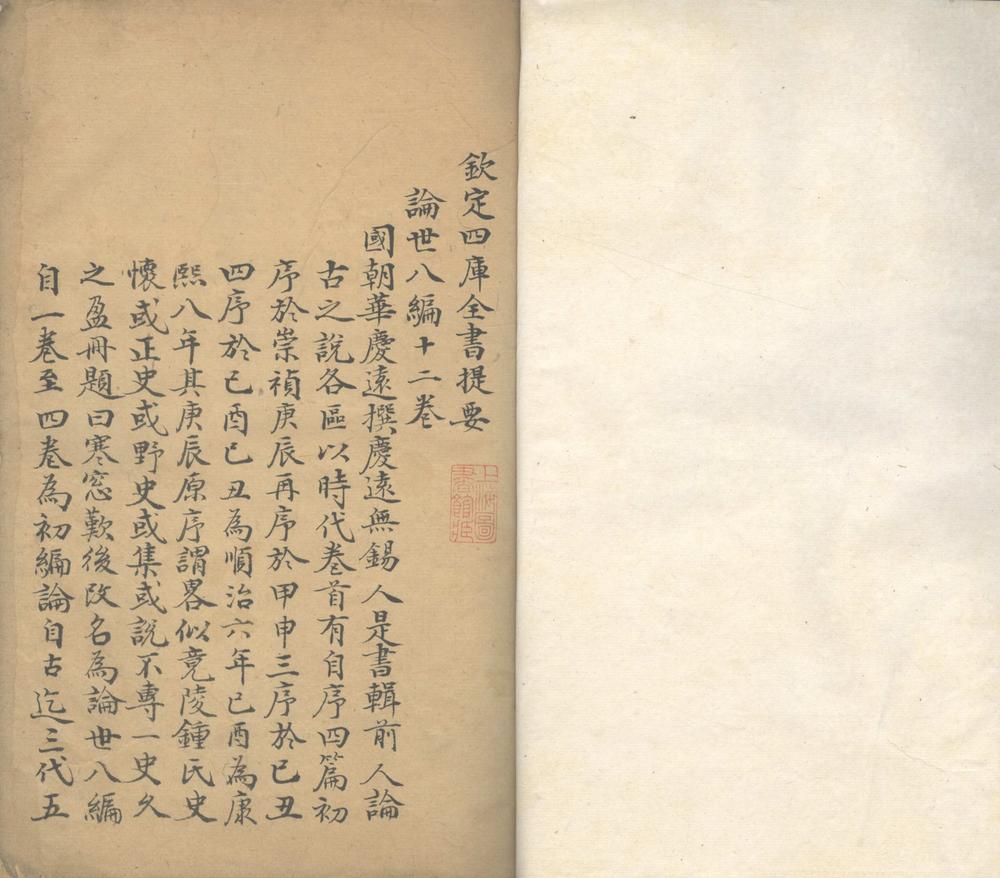 欽定四庫全書提要
論世八編十二卷
國朝華慶遠撰慶遠無錫人是書輯前人論
古之說各區以時代卷首有自序四篇初
序於崇禎庚辰再序於甲申三序於已丑
四序於已酉已丑為順治六年已酉為康
熙八年其庚辰原序謂畧似竟陵鍾氏史
懷或正史或野史或集或說不專一史久
之盈冊題曰寒窓歎後改名為論世八編
自一卷至四卷為初編論自古迄三代五
上海圖
書館藏